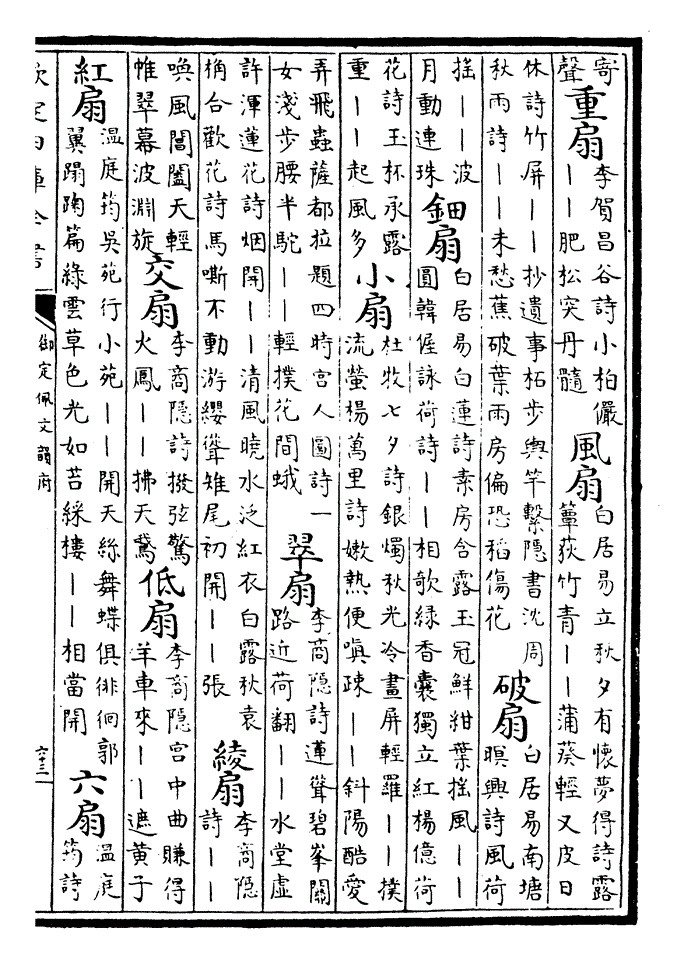 寄聲
重扇
李賀昌谷詩小柏儼
——肥松突丹髓
風扇
白居易立秋夕有懷夢得詩露
簟荻竹青——蒲葵輕又皮日
休詩竹屏——抄遺事柘步輿竿繫隱書沈周
秋雨詩——未愁蕉破葉雨房偏恐稻傷花
破扇
白居易南塘
暝興詩風荷
搖——波
月動連珠
鈿扇
白居易白蓮詩素房含露玉冠鮮紺葉搖風——
圓韓偓詠荷詩——相歌緑香囊獨立紅楊億荷
花詩玉杯承露
重——起風多
小扇
杜牧七夕詩銀燭秋光冷畫屏輕羅——撲
流螢楊萬里詩嫩熱便嗔踈——斜陽酷愛
弄飛蟲薩都拉題四時宫人圖詩一
女淺步腰半駝——輕撲花間蛾
翠扇
李商隱詩蓮聳碧峯關
路近荷翻——水堂虚
許渾蓮花詩烟開——清風曉水泛紅衣白露秋袁
桷合歡花詩馬嘶不動游纓聳雉尾初開——張
綾扇
李商隱
詩——
喚風閶闔天輕
帷翠幕波淵旋
交扇
李商隱詩撥弦驚
火鳳——拂天鵞
低扇
李商隱宫中曲賺得
羊車來——遮黄子
紅扇
温庭筠吴苑行小苑——開天絲舞蝶俱徘徊郭
翼蹋踘篇緑雲草色光如苔綵樓——相當開
六扇
温庭
筠詩
欽定四庫全書
御定佩文韻府
六十三